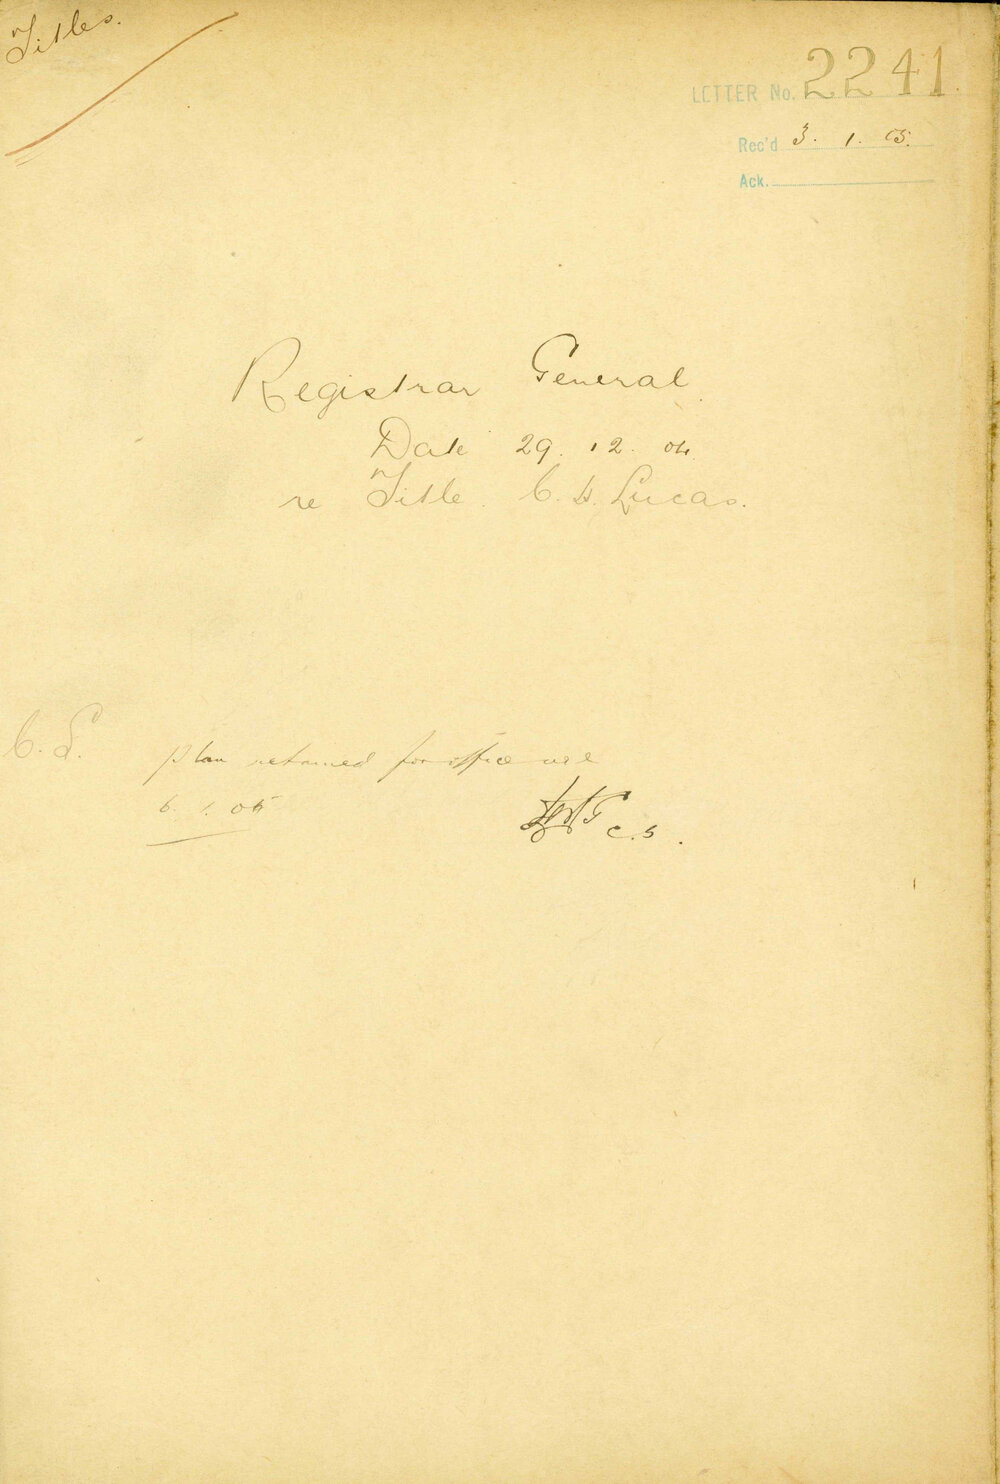 Titles.
LETTER No. 2241.
Rec'd 3. 1. 05.
Ack.
Registrar General
Date 29. 12. 04
re Title C. H. Lucas.
C. S.
plan retained for office use
6. 1. 05
C. S.